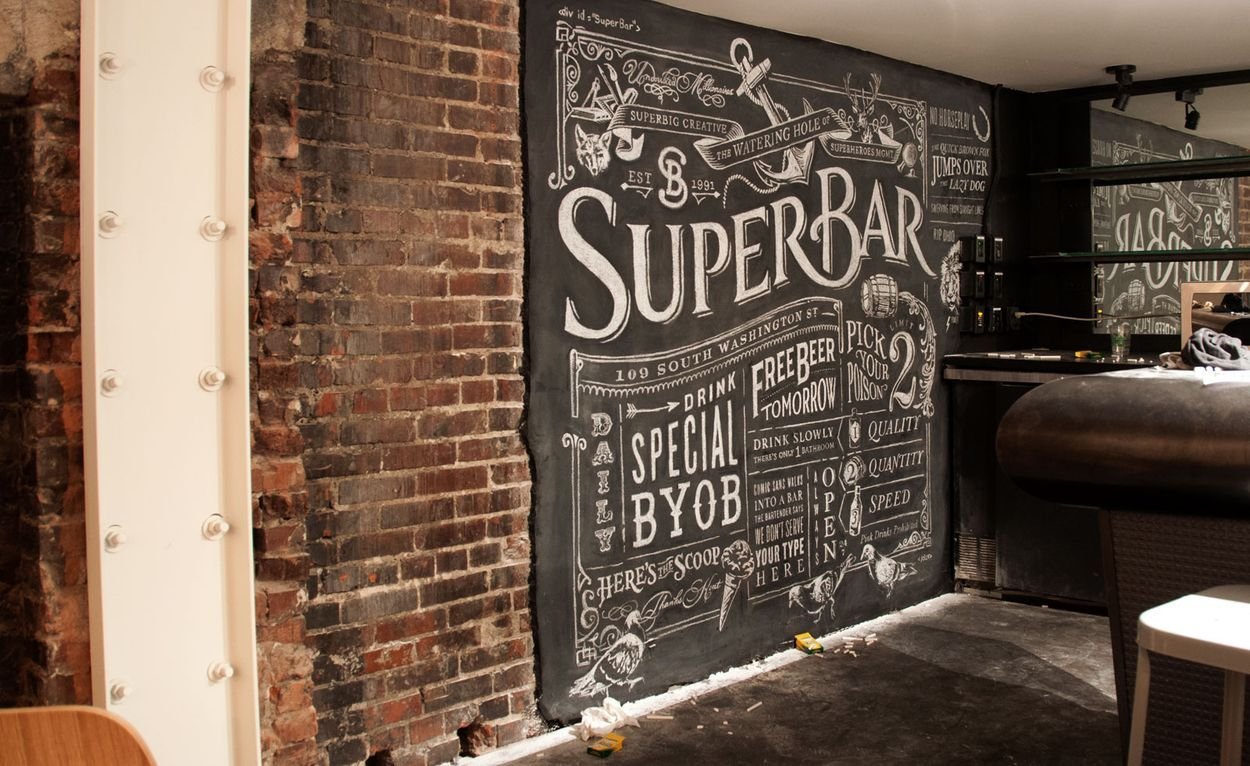 <div id="SuperBar">
SUPERBIG CREATIVE
THE WATERING HOLE OF
SUPERHEROES MGMT.
EST SB 1991
SUPERBAR
109 SOUTH WASHINGTON ST
DAILY
DRINK
SPECIAL
BYOB
FREE BEER
TOMORROW
DRINK SLOWLY
THERE'S ONLY 1 BATHROOM
COMIC SANS WALKS
INTO A BAR
THE BARTENDER SAYS
WE DON'T SERVE
YOUR TYPE
HERE
ALWAYS
OPEN
PICK
YOUR
POISON
LIMIT
2
1 QUALITY
2 QUANTITY
SPEED
Pink Drinks Prohibited
HERE'S THE SCOOP
NO HORSEPLAY
THE QUICK BROWN FOX
JUMPS OVER
THE LAZY DOG
SWERVING FROM STRAIGHT LINES
RIP OHNO